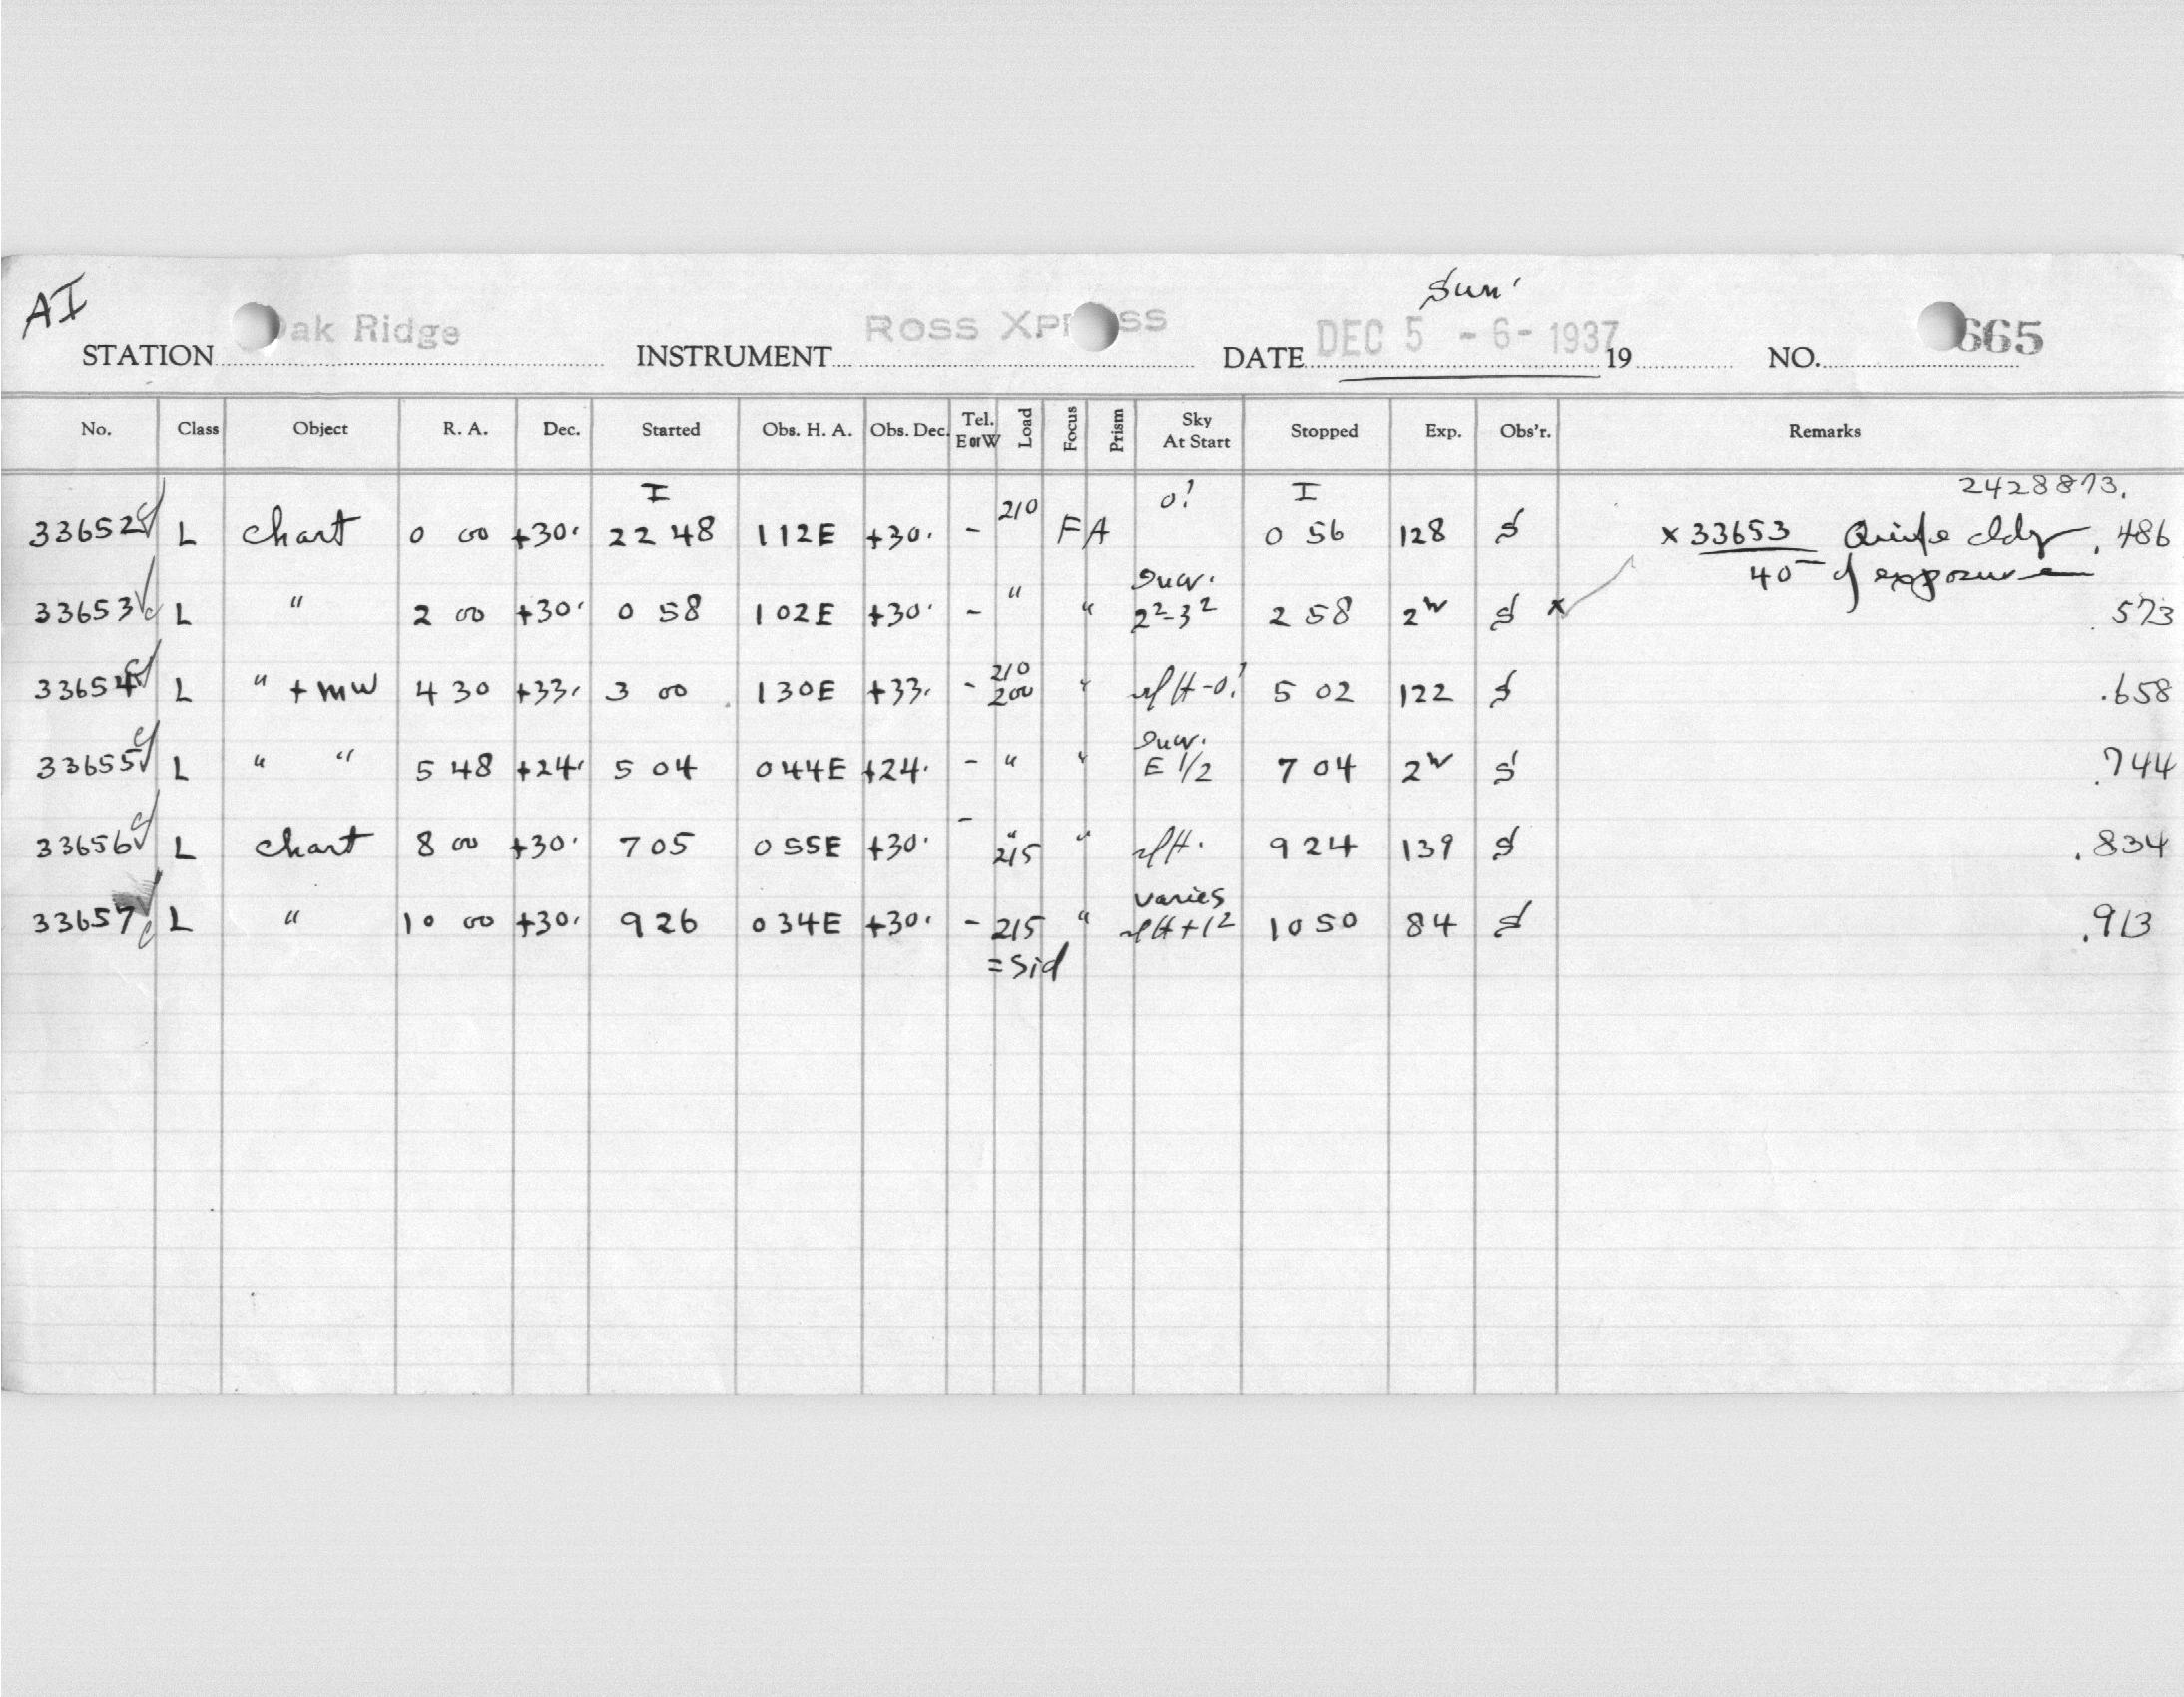 AI
Sun'
STATION Oak Ridge INSTRUMENT ROSS XPRESS DATE DEC 5 - 6 - 1937 19 NO. 665
No. Class Object R. A. Dec. Started Obs. H. A. Obs. Dec. Tel. E or W Load Focus Prism Sky At Start Stopped Exp. Obs'r. Remarks
I I 2428873.
33652 L chart 0 00 +30. 22 48 112E +30. - 210 FA 0! 0 56 128 S x 33653 Quite cldy .486
40- of exposure
33653 L " 2 00 +30. 0 58 102E +30. - " " 2²-3² 2 58 2 S x .573
33654 L " + MW 4 30 +33. 3 00 130E +33. - 210 200 " 5 02 122 S .658
33655 L " " 5 48 +24. 5 04 044E +24. - " " E 1/2 7 04 2 S .744
33656 L chart 8 00 +30. 7 05 055E +30. - " 215 " 9 24 139 S .834
33657 L " 10 00 +30. 9 26 034E +30. - 215 " varies 10 50 84 S .913
= Sid